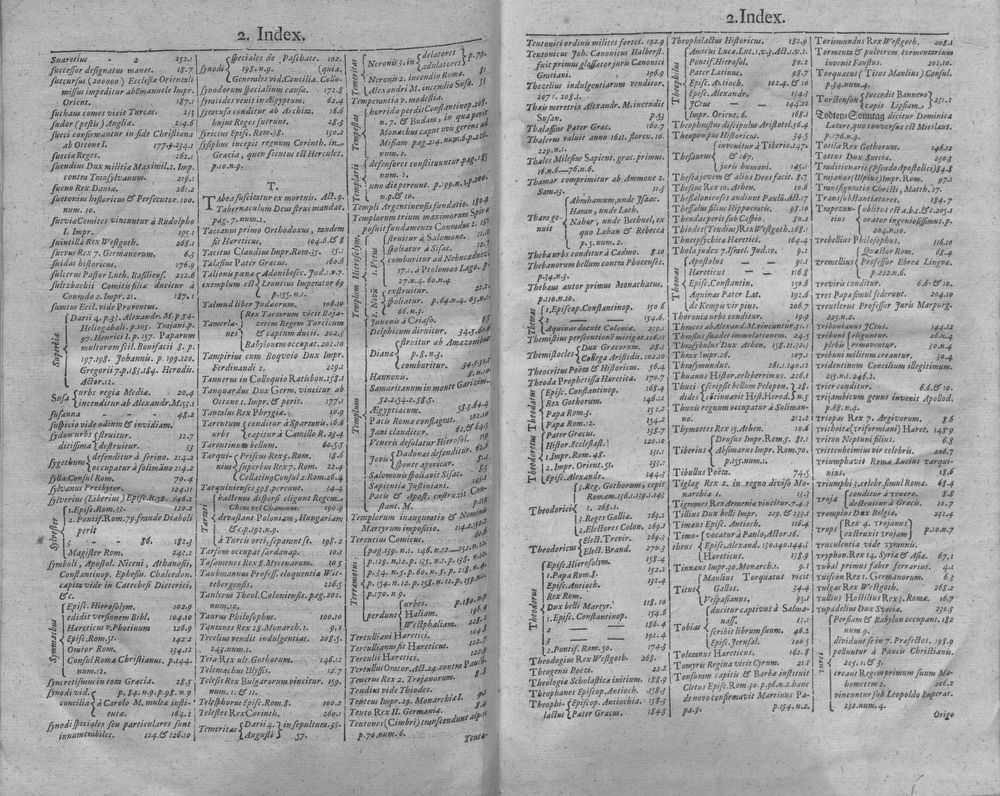 2. Index.
Suaretius - 2 232.1
successor designatus manet. 18.7
succursus (200000) Ecclesiæ Orientali
missus impeditur ab Emanuele Impr
Orient. 187.1
suchaus comes vicit Turcas. 213
sudor (pestis) Angliæ. 214.6
sueci confirmantur in fide Christiana
ab Ottone I. 177.9.234.1
sueciæ Reges. 262.1
suendius Dux militiæ Maximil.2. Imp.
contra Transylvanum. 219.1
sueno Rex Daniæ. 261.2
suetonius historicus & Persecutor. 100.
num. 10.
suevia Comites vincuntur à Rudolpho
I. Impr. 195.1
suintilla Rex Westgoth. 268.1
suevus Rex 7. Germanorum. 6.3
suidas historicus. 76.9
sulcerus Pastor Luth. Basiliens. 222.6
sultzbachii Comitis filiæ duciæ à
Conrado 2. Impr. 21. 187.1
suntus Eccl. vide Proventus.
Superbia
Darii 4. p.33. Alexandr. M. p.54
Heliogabali. p.105. Trajani. p.
97. Henrici I. p.157. Paparum
multorum siil. Bonifacii 8. p.
197.198. Johannis. p.199.120.
Gregorii 7. p.183.184. Herodis.
Actor. 12.
Susa urbs regia Mediæ. 20.4
incenditur ab Alexandr. M. 53.1
susanna - - 48.2
suspicio vide odium & invidiam.
sydon urbs struitur. 12.7
ditissima destruitur. 33
sygethum defenditur à serino. 214.2
occupatur à solimano 214.2
sylla Consul Rom. 70.4
sylvanus Presbyter. 124.11
sylverius (Liberius) Episc. R. 58. 146.2
Sylvester
1. Episc. Rom. 33. 120.2
2. Pontif. Rom. 79. fraude Diaboli
perit
- - 86. 182.3
Magister Rom. 243.2
symboli, Apostol. Niceni, Athanasii,
Constantinop. Ephesin. Chalcedon.
capita vide in Catechesi Dieterici,
&c.
Symmachus
Episc. Hierosolym. 102.9
edidit versionem Bibl. 104.10
Hareticus v. Photinum 126.9
Episc. Rom. 51. 142.2
Orator Rom. 134.12
Consul Roma Christianus. p. 144.
num. 12.
syncretismus in tota Græcia. 28.5
synodi vid. p. 84. n.9. p. 98. n.9
concilia à Carolo M. multæ instituta. 164.1
synodi speciales seu particulares sunt
innumerabiles. 124.6 & 126.10

speciales de Paschate. 102.
synodi 198. n.9. (quia.
Generales vid. Concilia. Collo-
synodorum specialium causa. 172.8
syracides venit in Ægyptum. 62.4
syracusæ conduntur ab Archita. 16.6
sy Reges feruntur. 28.3
syricius Episc. Rom. 38. 130.2
sysiphus incepit regnum Corinth. in
Græcia, quem secutus est Hercules.
p. 10. n.9.
T.
Tabea suscitatur ex mortuis. Act. 9.
Tabernaculum Deus strui mandat.
pag. 7. num. 2.
Tacianus primo Orthodoxus, tandem
sit Hareticus. 104.6 & 8
Tacitus Claudius Impr. Rom. 35. 110.1
Talasius Pater Græc. 160.6
Talionis pœnæ Adonibesec. Jud. 1. v. 7.
exemplum est Leontius Imperator 69
p. 155. n. 1.
Talmud liber Judæorum. 106.10
Tamerlanes
Rex Tartarum vicit Bajazetem Regem Turcicum
& captum ducit. 202.5
Babylonem occupat. 202.10
Tampirius cum Boquoio Dux Impr.
Ferdinandi 2. 219.1
Tannerus in Colloquio Ratisbon. 258.1
Tanquardus Dux Germ. vincitur ab
Ottone 1. Impr. & perit. 177.1
Tantalus Rex Phrygiæ. 10.9
Tarentum conditur à Spartanis. 16.6
urbs capitur à Camillo R. 23.4
Tarentinum bellum. 60.5
Tarquinius
Priscus Rex 5. Roma. 18.6
superbus Rex 7. Rom. 22.4
Collatinq; Consul 2. Rom. 26.4
Tarquinienses 398. pereunt. 34.4
Tartari
hactenus dispersi eligunt Regem.
Chim vel Chanum. 190.9
devastant Poloniam, Hungariam
& c. p. 192. n.9.
à Turcis orti, separant se. 198.2
Tarsum occupat sardanap. 10.1
Tasamenes Rex 8. Mycenarum. 10.5
Taubmannus Profess. eloquentiæ Witteberg ensis. 126.5
Taulerus Theol. Coloniensis. pag. 202.
num. 10.
Taurus Philosophus. 100.10
Taxanes Rex 28. Monarch. 1. 9.1
Tecelius vendit indulgentias. 208.5.
243. num. 1.
Teia Rex ult. Gothorum. 146.12
Telemachus Ulyssis. 12.7
Telesis Rex Bulgarorum vincitur. 159.
num. 1. & 11.
Telesphorus Episc. Rom. 8. 100.2
Telestes Rex Corinth. 260.1
Temeritas Darii 4. in sepultura. 33.
Augusti 57.

Temeritas
Neronii 3. in delatores p. 79.
adulatores
Neronii 2. incendio Roma 81
Alexandri M. incendio Susa. 53
Temperantia v. modestia.
Tempestas
horrida perdit Constantinop. 208.
n. 7. & Budam, in qua perit
Monachus caput viri gerens ab
Misiam pag. 214. num. 6. p. 226.
num. 1.
Templarii
defensores constituuntur pag. 185
num. 1.
uno die pereunt. p. 199. n. 1. p. 200.
n. 9. & 10.
Templi Argentinensis fundatio. 180.9
Templorum trium maximorum Spira
posuit fundamenta Conradus 2.
Templum Hierosolym.
1. Prius
struitur à Salomone. 11.
spoliatur à Sisac. 12.
comburitur ad Nebucadnez.
17. 1. à Ptolomæo Lago. p.
27. n. 4. 60. n. 4
2. Novū
exstruitur. 22.
spoliatur. p. 64. n. 4. 65. n. 1
66. n. 3.
Templum
Junonis à Crœso. 61.
Delphicum diruitur. 34.5. 60.4
Diana struitur ab Amazonibus
p. 8. n. 3.
comburitur. 34.5
Hammonis.
Samaritanum in monte Garizim.
52. 2. 54. 2. 58. 5.
Ægyptiacum. 58.5. 60.4
Pacis Roma consagrat. 102.10
Jani clauditur. 62. & 64.5
Veneris desolatur Hierosol. 119
Jovis Dadonai defenditur. 62.
sponte aperitur. 65.
Salomonis spoliatur Sisac. 65.
Sapientia Justiniani. 165.
Pacis & Apost. exstruxit Constant. M.
Templorum inauguratio & Nominis
Martyrum impositio. 114.2. 152.2
Terentius Comicus. 60.6
Terræmotus
pag. 139. n. 1. 146. n. 12. 152. n. 12.
p. 129. n. 12. p. 125. n. 1. p. 152.
p. 34. n. 5. p. 60. n. 5. p. 218. n. 4.
p. 154. n. 12. p. 158. n. 12. p. 159.
p. 170. n. 9.
perdunt urbes. p. 180. n. 9
Hassiam. 196.2
Westphaliam. 228.1
Tertulliani Haretici. 104.
Tertullianus fit Hareticus. 110.
Tertullus Orator, Act. 24. contra Paulū.
Teucrus Rex 2. Trojanorum. 8
Teudius vide Thiodes.
Teptcus Impr. 29. Monarchæ I.
Teuto Rex II. Germaniæ. 8.4
Teutones (Cimbri) transcendunt alpes
p. 70. num. 6.
Teuto-

2. Index.
Teutonici ordinii milites fortes. 192.9
Teutonicus Joh. Canonicus Halberst.
fuit primus glossator juris Canonici
Gratiani. 196.9
Thezelius indulgentiarum venditor.
207.1. 208.1.
Thais meretrix Alexandr. M. incendit
Susan. p. 53
Thalassius Pater Græc. 160.7
Thalerus valuit anno 1621. floren. 10.
229. 1.
Thales Milesius Sapient. Græc. primus
16. n. 6. - 76. n. 6.
Thamar comprimitur ab Ammone 2.
Sam. 13. 11.3
Thare genuit
Abrahamum, unde Isaac.
Haran, unde Loth.
Nahor, unde Bethuel, ex
quo Laban & Rebecca
p. 5. num. 2.
Theba urbs conditur à Cadmo. 8.10
Thebanorum bellum contra Phocenses.
p. 34. n. 3.
Thebæus autor primus Monachatus.
p. 110. n. 10.
Themas
1. Episcop. Constantinop. 150.6
2. - - - 154.6
Aquinas docuit Coloniæ. 250.1
Themistius persecutione mitigat. 126.11
Themistocles Dux Græcorum. 28.5
Collega Aristidis. 102.10
Theocritus Poëta & Historicus. 56.4
Theoda Prophetissa Haretica. 170.7
Theodoretus Theodatus
Episc. Constantinop. 168.4
Rex Gothorum. 146.12
Papa Rom. 3. 151.2
Papa Rom. 2. 154.2
Pater Græcus. 138.7
Histor. Ecclesiast. 120.10
1. Impr. Rom. 48. 131.1
2. Impr. Orient. 51. 133.1
Episc. Alexandr. 144.3
Theodorici
3. Reg. Gothorum, cepit
Romam 136.1. 139.1. 145
1. 268.1.
3. Reges Galliæ. 269.2
2. Electores Colon. 269.1
Theodoricus
Elect. Trevir. 269.3
Elect. Brand. 270.3
Theodorus
Episc. Hierosolym. 158.4
1. Papa Rom. 3. 152.2
Episc. Antioch.
Rex Rom.
Dux belli Martyr. 118.10
1. Episc. Constantinop. 154.6
2. - - 186.6
3. - - 192.4
2. Pontif. Rom. 50. 174.3
Theodogius Rex Westgoth. 268.1
Theologia. 22.2
Theologiæ Scholastica initium. 188.9
Theophanes Episcop. Antioch. 158.3
Theophilactus Episcop. Antiochia. 158.3
Pater Græcus. 184.5

Theophilactus Historicus. 182.9
Theophilus
Amicus Lucæ. Lut. 1. v. 3. Act. 1. v. 1.
Pontif. Hierosol. 80.2
Pater Latinus. 98.7
Episc. Antioch. 102.4. & 10
Episc. Alexandr. 134.3
JCtus - - 144.12
Impr. Orient. 6. 168.1
Theophrastus discipulus Aristotel. 56.4
Theopompus Historicus. 34.5
Thesaurus
invenitur à Tiberio. 147.
& 67.
juris humani. 145.1
Thesea jovem & alios Deos facit. 8.7
Theseus Rex 10. Athen. 10.6
Thessalonienses audiunt Paulū. Act. 17
Thessalus filius Hippocratis. 98.10
Thesdas perit sub Caspio 50.2
Thiodes (Teudius) Rex Westgoth. 268.1
Thnetpsychita Haretici. 164.4
Thola index 7. Israel. Jud. 10. 9.2
Thomas
Apostolus - 91.1
Hareticus - 116.8
Episc. Constantin. 150.6
Aquinas Pater Lat. 192.6
de Kempis vir pius. 206.7
Thoronia urbs conditur. 190.9
Thraces ab Alexandr. M. vincuntur. 51.1
Thrasius suadet immolationem. 24.5
Thrasybulus Dux Athen. 158.12. 34.1
Thrax Impr. 26. 107.1
Thrasymundus. 126.1. 140.12
Thuanus Histor. celeberrimus. 226.1
Thucydides scripsit bellum Pelopon. 28.
continuavit Hist. Herod. n. 5
Thunis regnum occupatur à Soliman-
no. 212.2
Thymoetes Rex 15. Athen. 10.6
Tiberius
Drusus Impr. Rom. 5. 81.1
Absimarus Impr. Rom. 70.
p. 155. num. 1.
Tibullus Poëta. 74.5
Tiglag Rex 2. in regno diviso Monarchiæ 1. 13.3
Tigrames Rex Armeniæ vincitur. 7.4.3
Tillius Dux belli Impr. 229. & 233.1
Timæus Episc. Antioch. 116.4
Timotheus
vocatur à Paulo, Act. 16.
Episc. Alexand. 130. 140. 144.3
Hareticus. 138.9
Timæus Impr. 30. Monarch. 2. 9.1
Titus
Manlius Torquatus vicit
Gallos. 34.4
Vespasianus. 93.1
Tobias
ducitur captivus à Salmanass. 13.1
scribit librum suum. 46.2
Episc. Jerusal. 100.3
Toletanus Hareticus. 162.8
Tomyris Regina vicit Cyrum. 21.1
Tonsuram capitis & Barbæ instituit
Cletus Episc. Rom. 30. p. 96. n. 2. hanc
de novo confirmavit Martinus Papa 9. p. 154. n. 2.

Torismundus Rex Westgoth. 208.1
Tormenta & pulverem tormentarium
invenit Faustus. 202.10.
Torquatus (Titus Manlius) Consul.
p. 34. num. 4.
Torstenson succedit Bannero
capit Lipsiam. 231.1
Todten-Sonntag dicitur Dominica
Lætare, quo conversi est Mislaut.
p. 176. n. 9.
Totila Rex Gothorum. 146.12
Tottus Dux Sueciæ 230.5
Traditionarii (Pseudo Apostolici) 84.8
Trajanus (Ulpius) Impr. Rom. 97.1
Transfiguratio Christi, Matth. 17.
Transsubstantiatores. 184.7
Trapezuntius
oblitus est a. b. c. & 203.1
orator ingeniosissimus.
204. n. 10.
Trebellius Philosophus. 116.10
Tremellius
Quæstor Rom. 68.4
Professor Librea Linguæ.
p. 222. n. 6.
Treviris conditur. 6.6. & 10
Tres Papæ simul sederunt. 204.10
Treutlerus Professor Juris Marpurg. 222.5
Tribonianus JCtus. 144.12
Tribuni eliguntur. 26.n.4
plebis removentur. 30.n.4
Tribuni militum creantur. 30.4
Tridentinum Concilium illegitimum.
215. n. 2. 246.2.
Trier conditur. 6.6. & 10.
Trijambicum genus invenit Apollod.
p. 68. n. 4.
Triopas Rex 7. Argivorum. 8.6
Tritheita (triformiani) Haret. 147.9
Triton Neptuni filius. 6.8
Trittenhemius vir celebris. 206.7
Triumphavit Roma Lucius Tarquinius. 18.6
Triumphi 3. celebr. simul Roma. 68.4
Troja
conditur à Tenero. 8.8
destruitur à Græcis. 10.7
Trompius Dux Belgia. 232.4
Trops Rex 4. Trojanus p. 10. n. 7
exstruxit Trojam
Truculentia vide Tyrannis.
Tryphon. Rex 14. Syria & Asiæ. 67.1
Tubal primus faber ferrarius. 4.1
Tuiscon Rex I. Germanorum. 6.3
Tulgas Rex Westgoth. 268.2
Tullus Hostilius Rex 3. Roma. 16.7
Tupadelius Dux Sveciæ. 230.5
Turci
Persiam & Babylon occupat. 182
num. 9.
dividunt se in 7. Præfectos. 198.9
pelluntur à Paucis Christianis.
205. 1. & 3.
creant Regem primum suum Mahometem 2.
vincuntur sub Leopoldo Imperat.
232. num. 4.
Origo